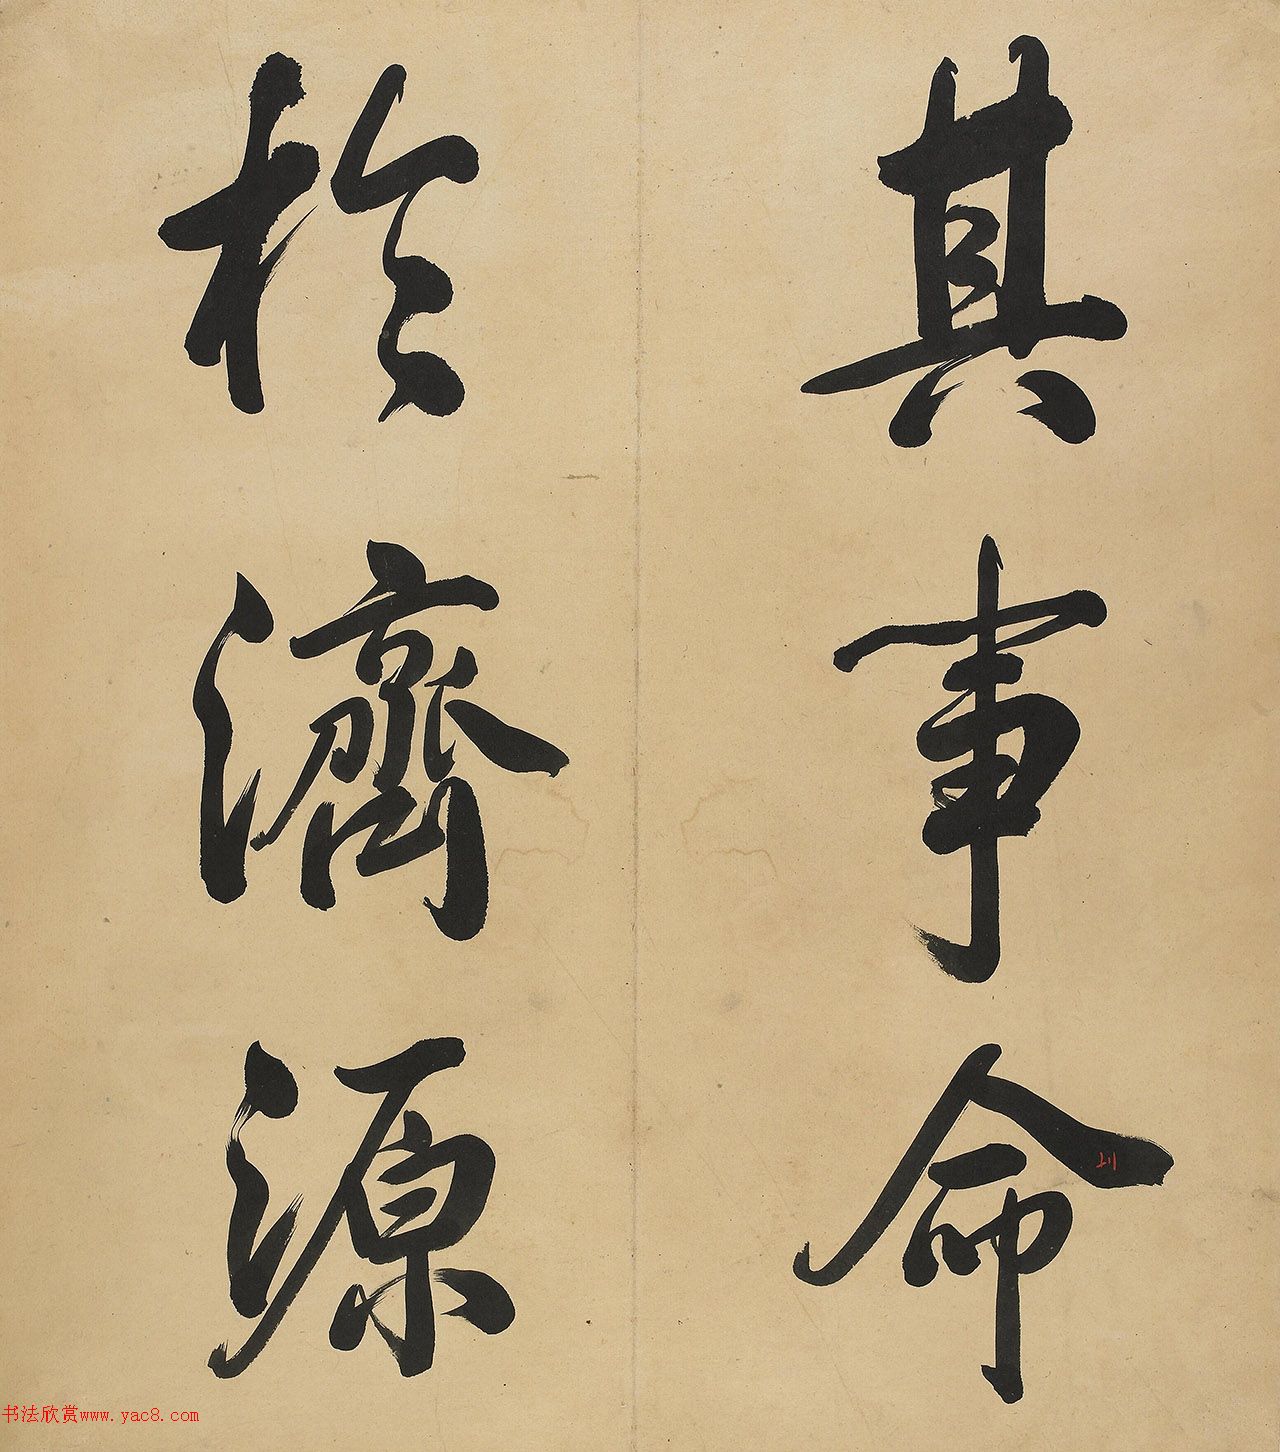 其事命
於濟源
书法欣赏www.yac8.com